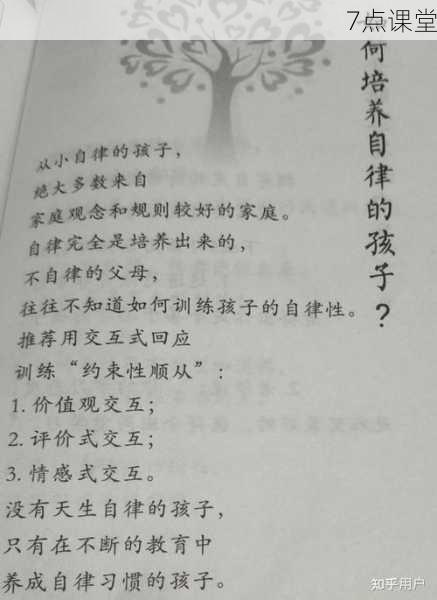 7点课堂
何培养自律的孩子？
从小自律的孩子，
绝大多数来自
家庭观念和规则较好的家庭。
自律完全是培养出来的，
不自律的父母，
往往不知道如何训练孩子的自律性。
推荐用交互式回应
训练“约束性顺从”：
1. 价值观交互；
2. 评价式交互；
3. 情感式交互。
没有天生自律的孩子，
只有在不断的教育中
养成自律习惯的孩子。
知乎用户